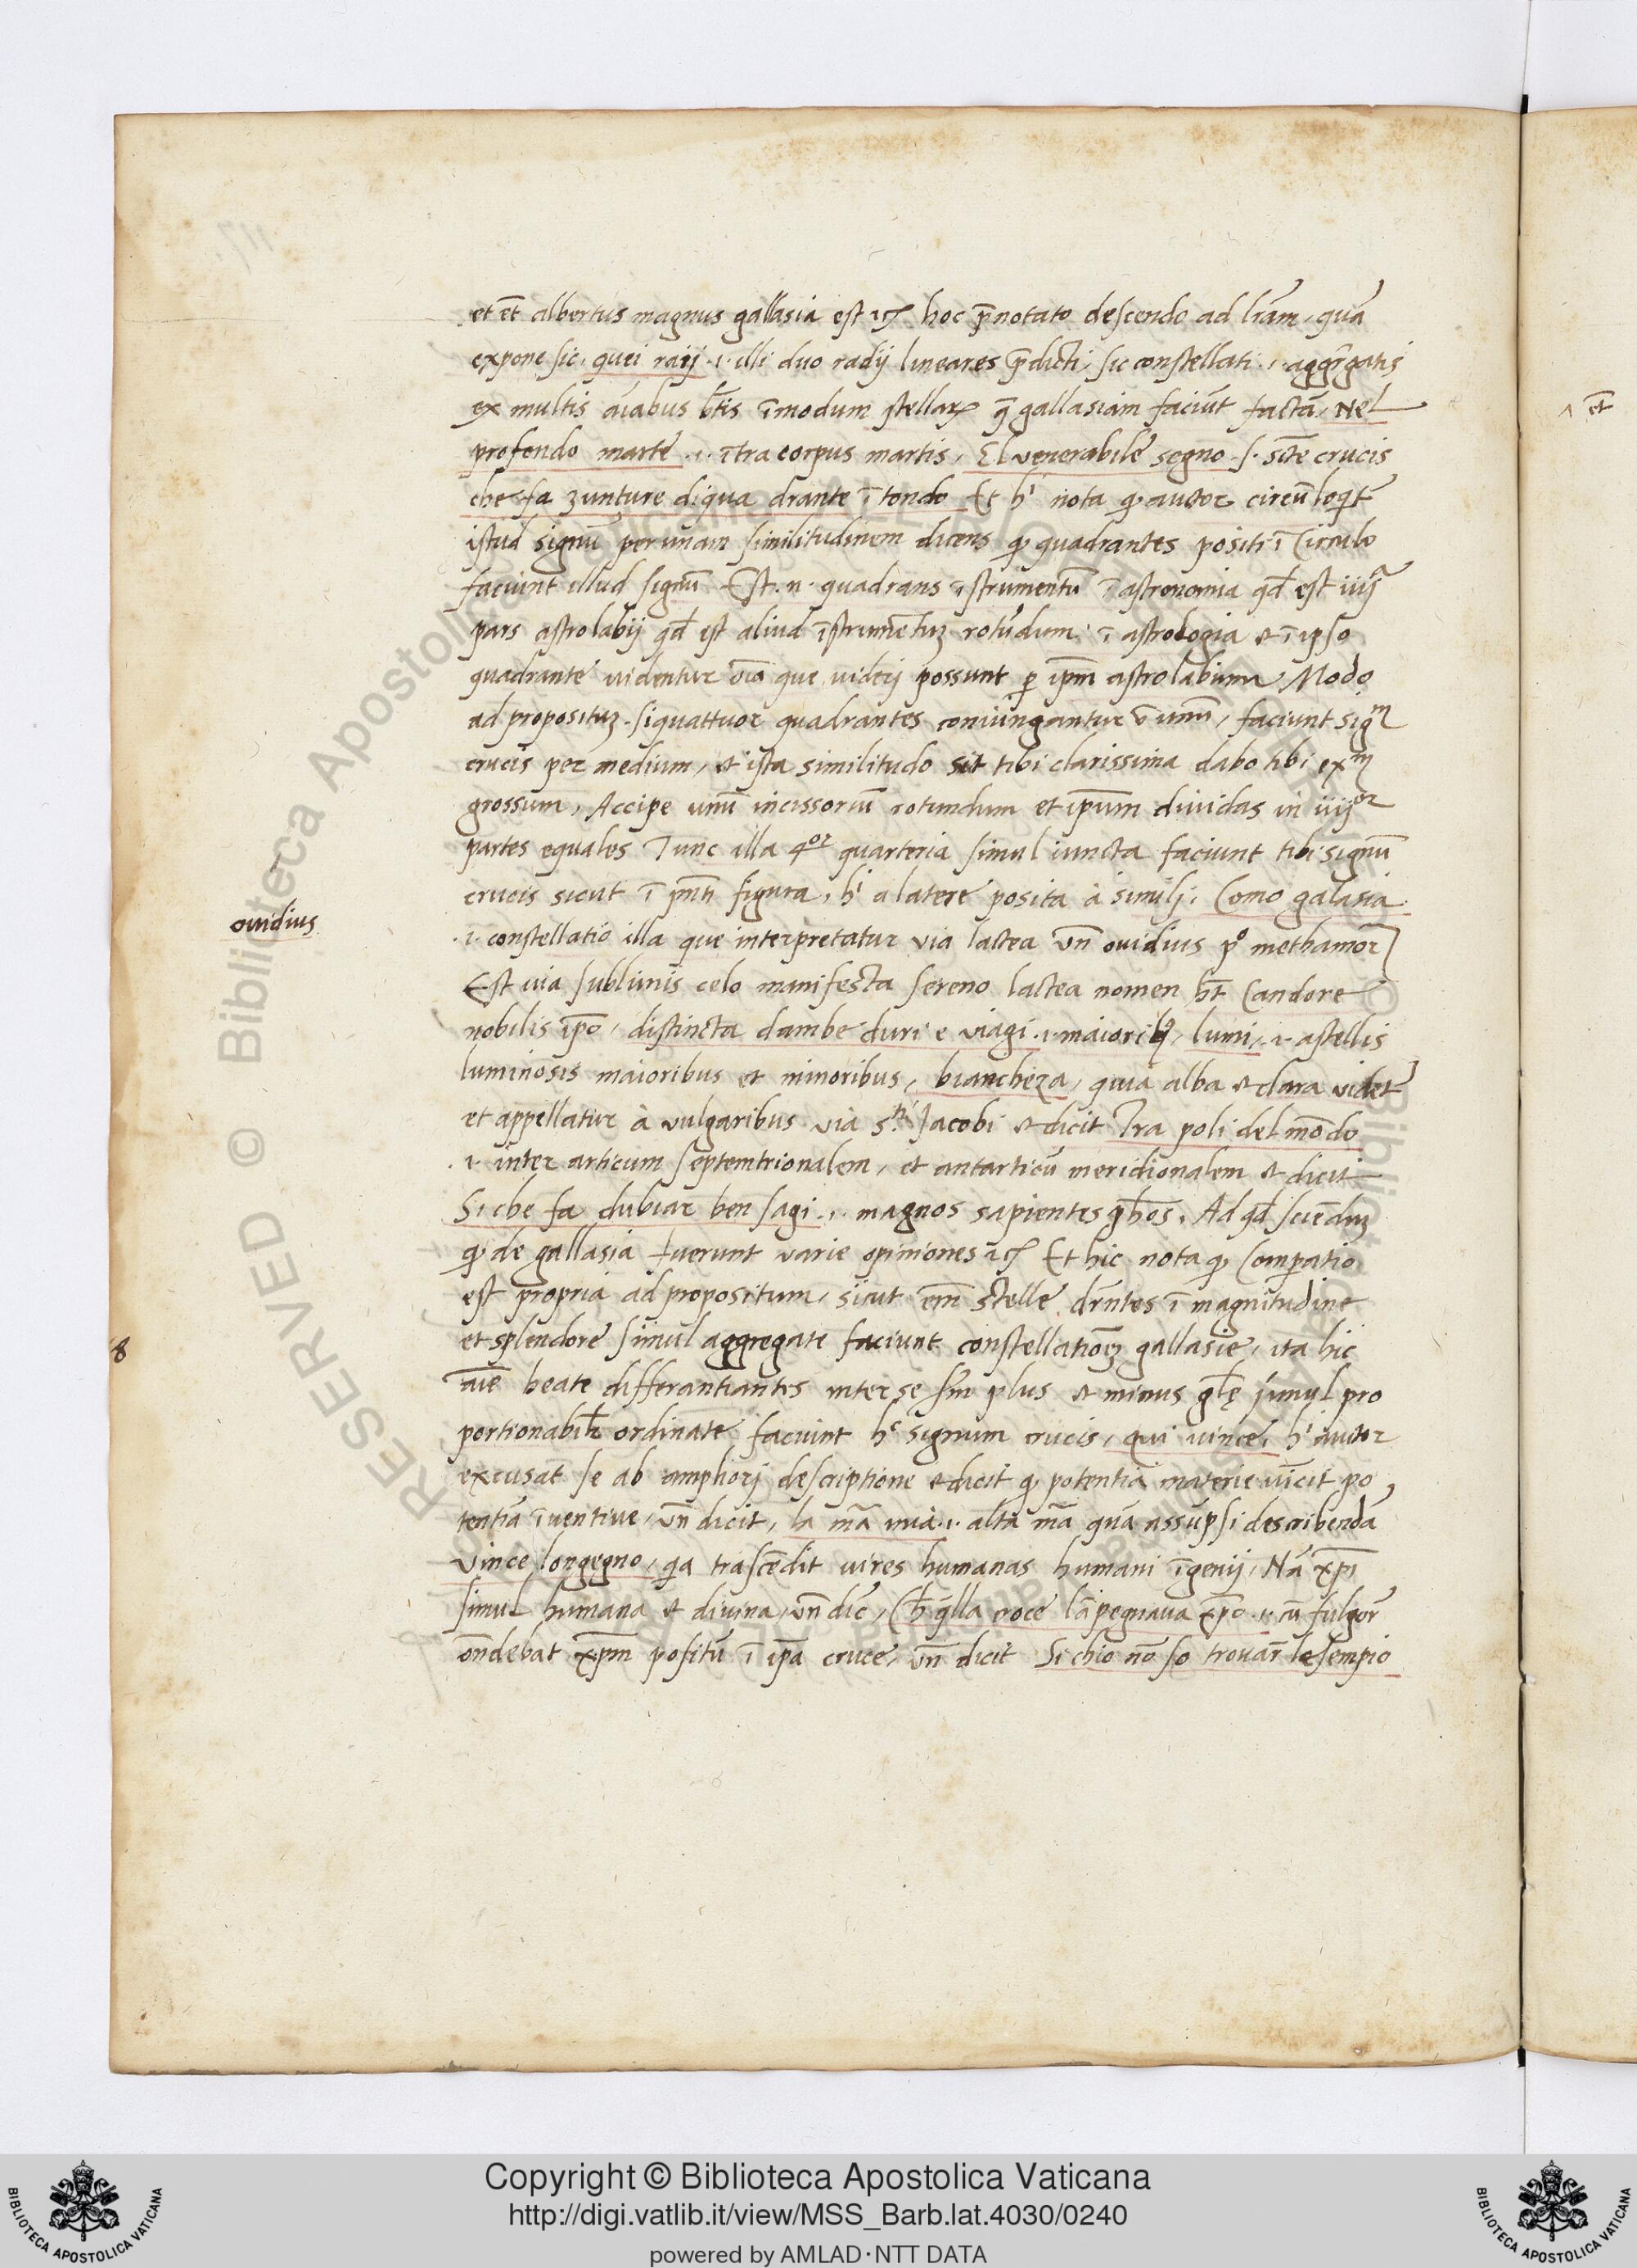 et et̄ albertus magnus gallasia est ꝛc̃. hoc p̄notato descendo ad lr̄am, quā
expone sic, quei raij .i. illi duo radij lineares p̄dicti, sic constellati .i. aggr̄gatis
ex multis aīabus bt̄is ī modum stellaꝝ q̄ gallasiam faciūt factā, Nel
profondo marte .i. ītra corpus martis, El venerabile segno .s. scte crucis
che fa zunture di qua drante ī tondo Et hⁱ nota ꝙ auctor circūloqt̄
istud signū per unam similitudinem dicens ꝙ quadrantes positi ī Circulo
faciunt illud signū Est .n. quadrans īstrumentū ī astronomia qđ est iiijᵃ
pars astrolabij qđ est aliud īstrumētuʒ rotūdum ī astrologia et ī ipso
quadrante videntur oīa que viderj possunt ꝑ ipm̄ astrolabium Modo
ad proposituʒ si quattuor quadrantes coniungantur ī unū, faciunt sigᵐ
crucis per medium, et ista similitudo sit tibi clarissima dabo tibi exᵐ
grossum, Accipe unū incissoriū rotundum et ip̄um dividas in iiijᵒʳ
partes equales Tunc illa 4ᵒʳ quarteria simul iuncta faciunt tibi signū
crucis sicut ī pn̄ti figura, hⁱ a latere posita à similj, Como galasia
.i. constellatio illa que interpretatur via lactea vn̄ ovidius pº methamor
Est via sublimis celo manifesta sereno lactea nomen ht̄ Candore
nobilis ip̄o, distincta dambe duri e viagi .i. maioribꝫ, lumi, .i. a stellis
luminosis maioribus et minoribus, biancheza, quia alba et clara videt̄
et appellatur à vulgaribus via s.ᵗⁱ Jacobi et dicit Tra poli del mōdo
.i. inter articum septemtrionalem, et antarticū meridionalem et dicit
Si che fa dubiar ben sagi .i. magnos sapientes ph̄os, Ad qđ sciēduʒ
ꝙ de gallasia fuerunt varie opiniones ꝛc̃ Et hic nota ꝙ Comꝑatio
est propria ad propositum, sicut em̄ stelle dr̄ntes ī magnitudine
et splendore simul aggregate faciunt constellationeʒ gallasie, ita hic
aīe beate differantiantes inter se sm̄ plus et minus gl̄ę simul pro
portionabilr̄ ordinate faciunt hᶜ signum crucis, qui vince, hⁱ auctor
excusat se ab ampliorj descriptione et dicit ꝙ potentia materie vīcit po
tentiā īventive, vn̄ dicit, la mā mia .i. alta mā quā assūpsi describendā
vince longegno, qa trascēdit vires humanas humani īgenij, Nā xp̄i
simul humana et divina, vn̄ dic̄, Ch̄ qlla croce lāpegiava xp̄o .i. cū fulgor̄
on̄debat xp̄m positū ī ipa cruce, vn̄ dicit Si chio nō so trovar̄ lesempio
ovidius
8
^ et̄
RESERVED © Biblioteca Apostolica Vaticana
Copyright © Biblioteca Apostolica Vaticana
http://digi.vatlib.it/view/MSS_Barb.lat.4030/0240
powered by AMLAD·NTT DATA
BIBLIOTECA APOSTOLICA VATICANA
BIBLIOTECA APOSTOLICA VATICANA